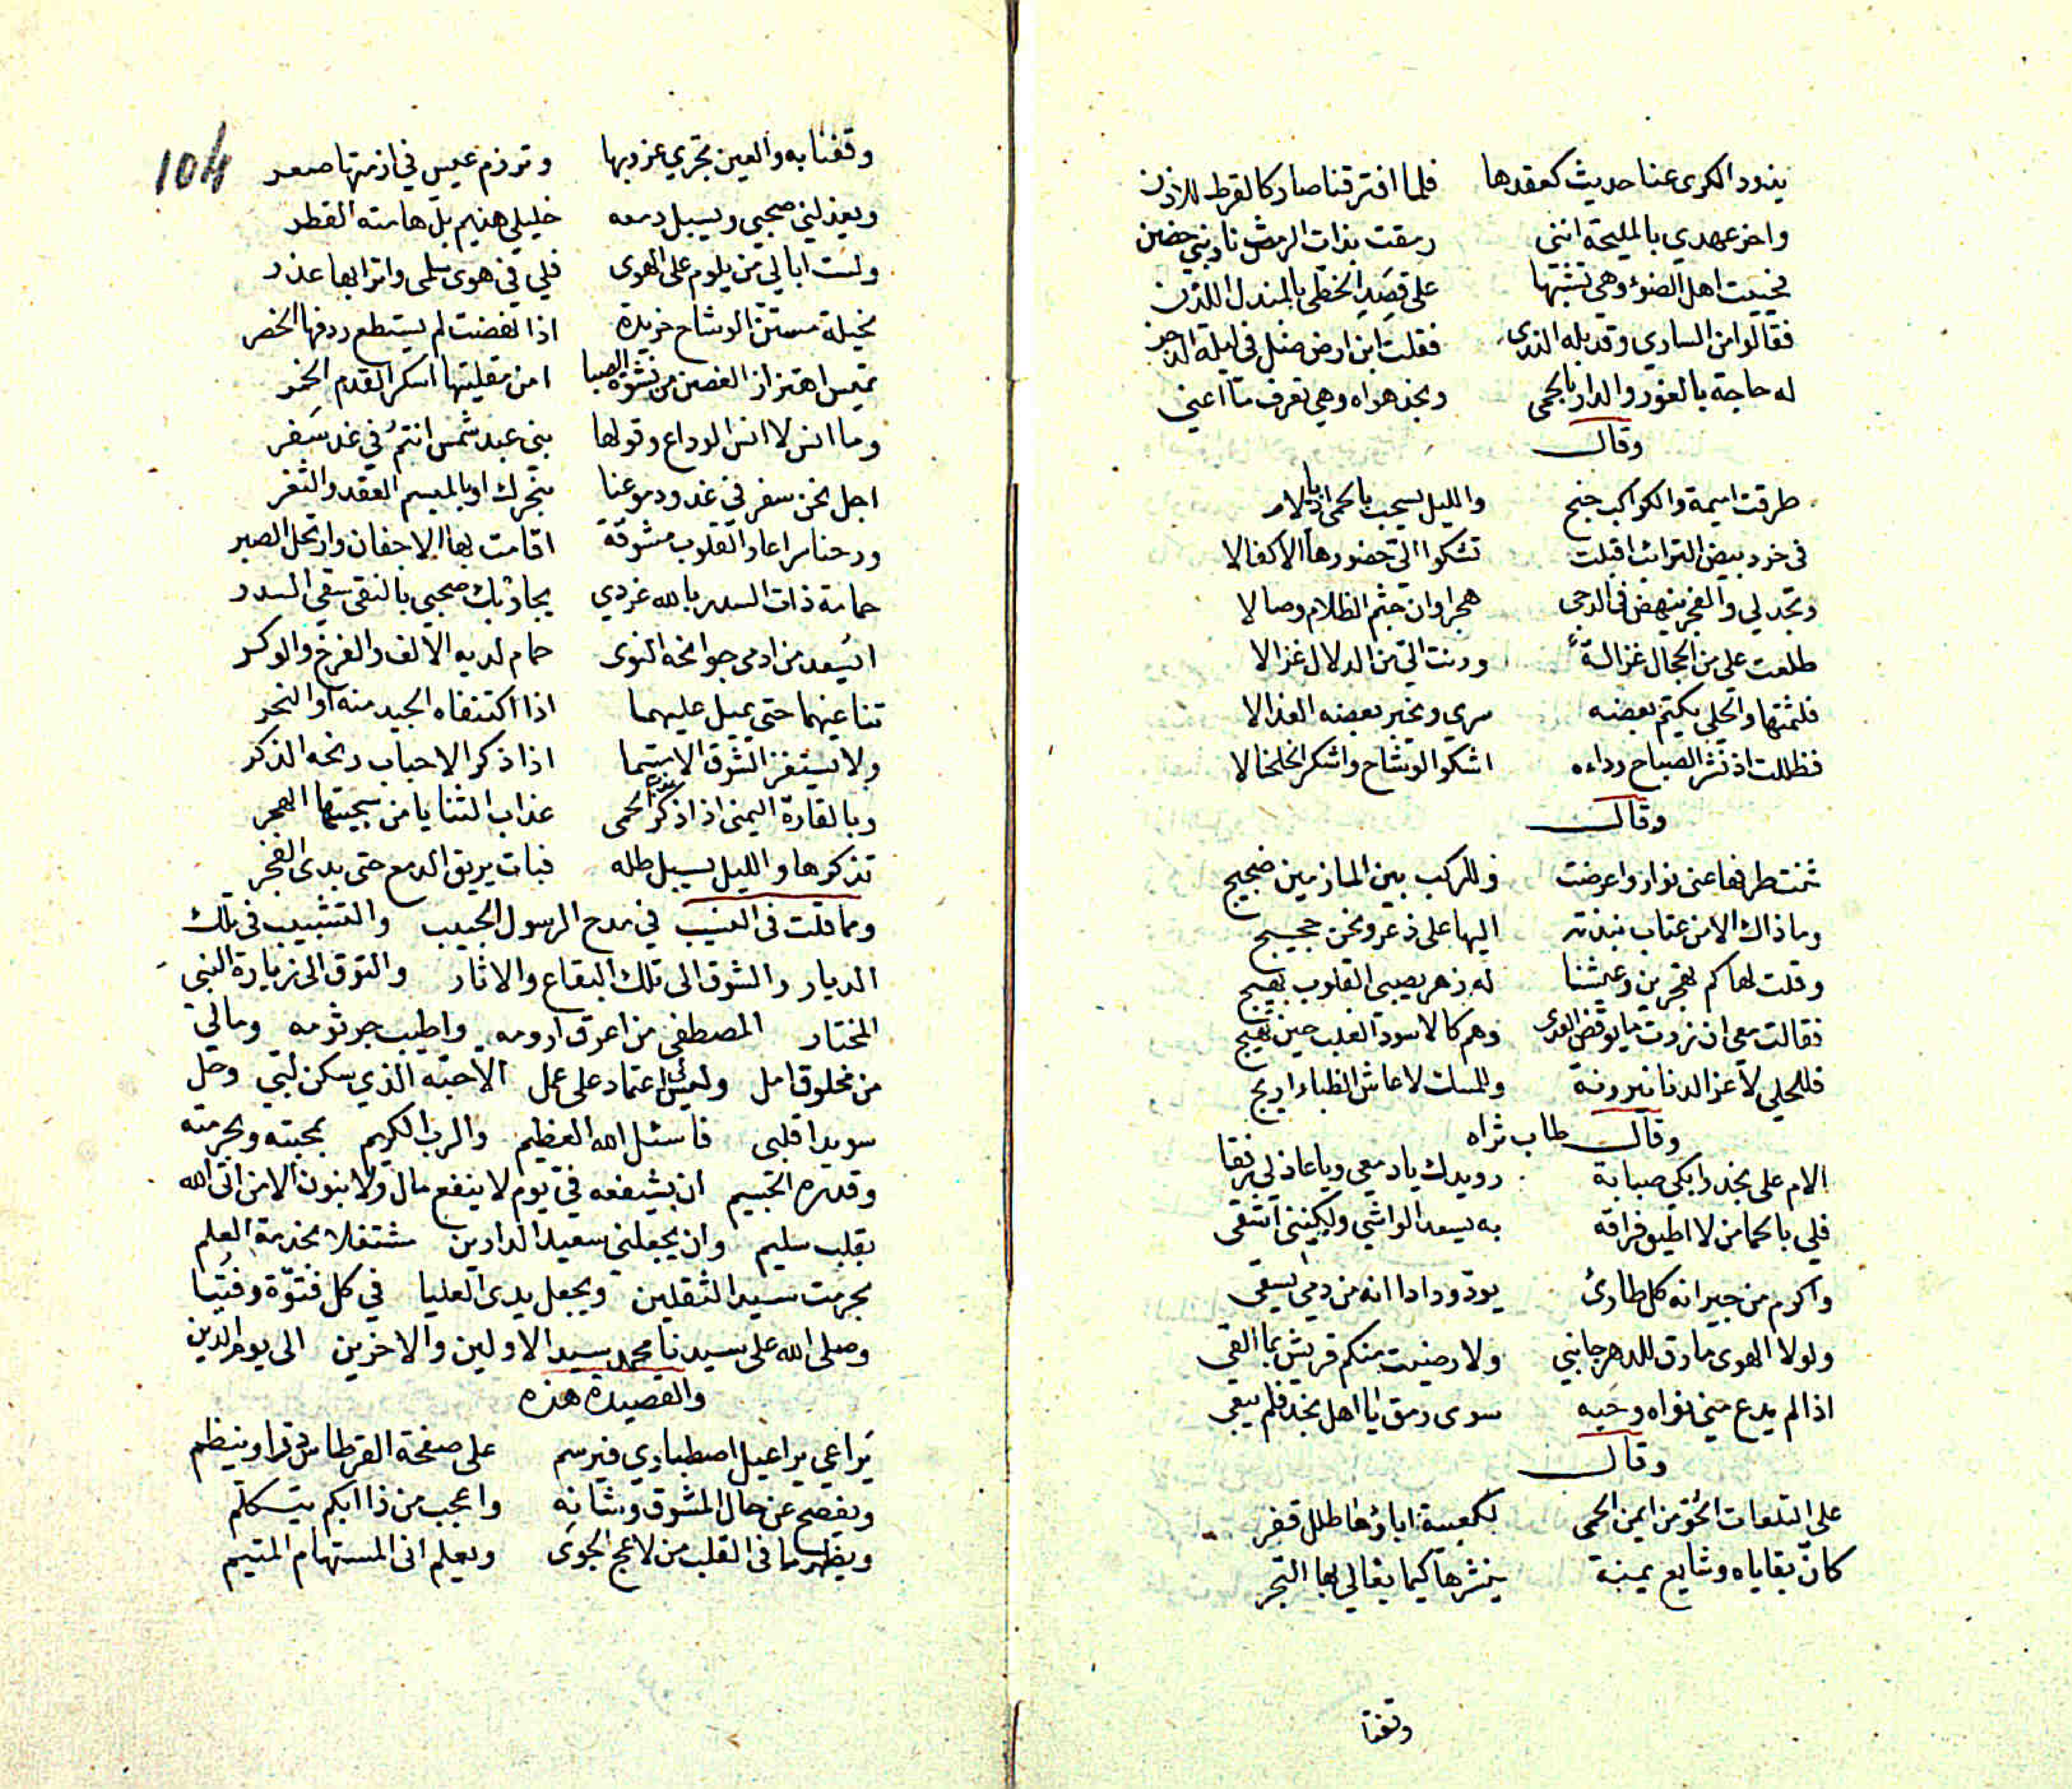 يذود الكرى عنا حديث كعقدها فلما افترقنا صار كالقرط للاذن
واخر عهدي بالمليحة انني رمقت بذات الرمث نار بني حضن
فحييت اهل الضوء وهي تشبها على قصد الخطي بالمندل اللدن
فقالوا من الساري وقد بله الندى فقلت ابن ارض ضل في ليلة الدجن
له حاجة بالغور والدار بالحمى ونجد هواه وهي تعرف ما اعني
وقال
طرقت اميمة والكواكب جنح والليل يسحب بالحمى اذيالا
في خرد بيض الترائب اقبلت تشكوا الى خضورها الاكفالا
وتجد لي والفجر ينهض في الدجى هجرا وان جثم الظلام وصالا
طلعت علي من الحجال غزالة ورنت الي من الدلال غزالا
فلثمتها والحلي يكتم بعضه سري ويخبر بعضه العذالا
فظللت اذ نشر الصباح رداءه اشكوا الوشاح واشكر الخلخالا
وقال
ثنت طرفها عني نوار واعرضت وللركب بين المازمين ضجيج
وما ذاك الا من عتاب نبذته اليها على ذعر ونحن حجيج
وقلت لها كم تهجرين وعيشنا له زهر يصبي القلوب بهيج
فقالت معي ان زرت ما يوقض العدى وهم كالاسود الغلب حين تهيج
فللحلي لا عز الدنانير رنة وللمسك لا عاش الظباء اريج
وقال طاب ثراه
الام على نجد وابكي صبابة رويدك يا دمعي ويا عاذلي رفقا
فلي بالحما من لا اطيق فراقه به يسعد الواشي ولكنني اشقى
واكرم من جيرانه كل طارئ يود ودادا انه من دمي يسقى
ولولا الهوى ما رق للدهر جانبي ولا رضيت منكم قريش بما القى
اذا لم يدع مني نواه وحبه سوى رمق يا اهل نجد فلم يبقى
وقال
على التلعات الحو من ايمن الحمى لكعبية اباؤها طلل قفر
كان بقاياه وشايع يمنة ينشرها كيما يغالي بها التجر
وقفنا
104
وقفنا به والعين تجري غروبها وترزم عيس في ازمتها صعر
ويعذلني صحبي ويسبل دمعه خليلي هذيم بل هامته القطر
ولست ابالي من يلوم على الهوى فلي في هوى سلمى واترابها عذر
نحيلة مستن الوشاح خريدة اذا نهضت لم يستطع ردفها الخصر
تميس اهتزاز الغصن من نشوة الصبا امن مقلتيها اسكر القدم الخمر
وما انس لا انس الوداع وقولها بني عبد شمس انتم في غد سفر
اجل نحن سفر في غد ودموعنا بنجرك او بالمبسم العقد والثغر
ورحنا سراعا والقلوب مشوقة اقامت بها الاجفان وارتحل الصبر
حمامة ذات السدر بالله غردي يجاوبك صحبي بالنقى سقي السدر
ايسعد من ادمى جوانحه النوى حمام لديه الالف والفرخ والوكر
تناغيهما حتى يميل عليهما اذا اكتنفاه الجيد منه او النحر
ولا يستفز الشوق الا متيما اذا ذكر الاحباب رنحه الذكر
وبالقارة اليمنى اذا ذكر الحمى عذاب الثنايا من سجيتها الهجر
تذكرها والليل يسبل طله فبات يريق الدمع حتى بدى الفجر
ومما قلت في النسيب في مدح الرسول الحبيب والتشبيب في تلك
الديار والشوق الى تلك البقاع والاثار والتوق الى زيارة النبي
المختار المصطفى من اعرق ارومه واطيب جرثومه ومالي
من مخلوق امل وليس لي اعتماد على عمل الا حبه الذي سكن لبي وحل
سويدا قلبي فاسئل الله العظيم والرب الكريم بمحبته وبحرمته
وقدره الجسيم ان يشفعه في يوم لا ينفع مال ولا بنون الا من اتى الله
بقلب سليم وان يجعلني سعيد الدارين مشتغلا بخدمة العلم
بحرمت سيد الثقلين ويجعل يدى العليا في كل فتوة وفتيا
وصلى الله على سيدنا محمد سيد الاولين والاخرين الى يوم الدين
والقصيدة هذه
يراعي يراعي اصطباري فيرسم على صفحة القرطاس درا وينظم
ويفصح عن حال المشوق وشانه واعجب من ذا ابكم يتكلم
ويظهر ما في القلب من لاعج الجوى ويعلم اني المستهام المتيم